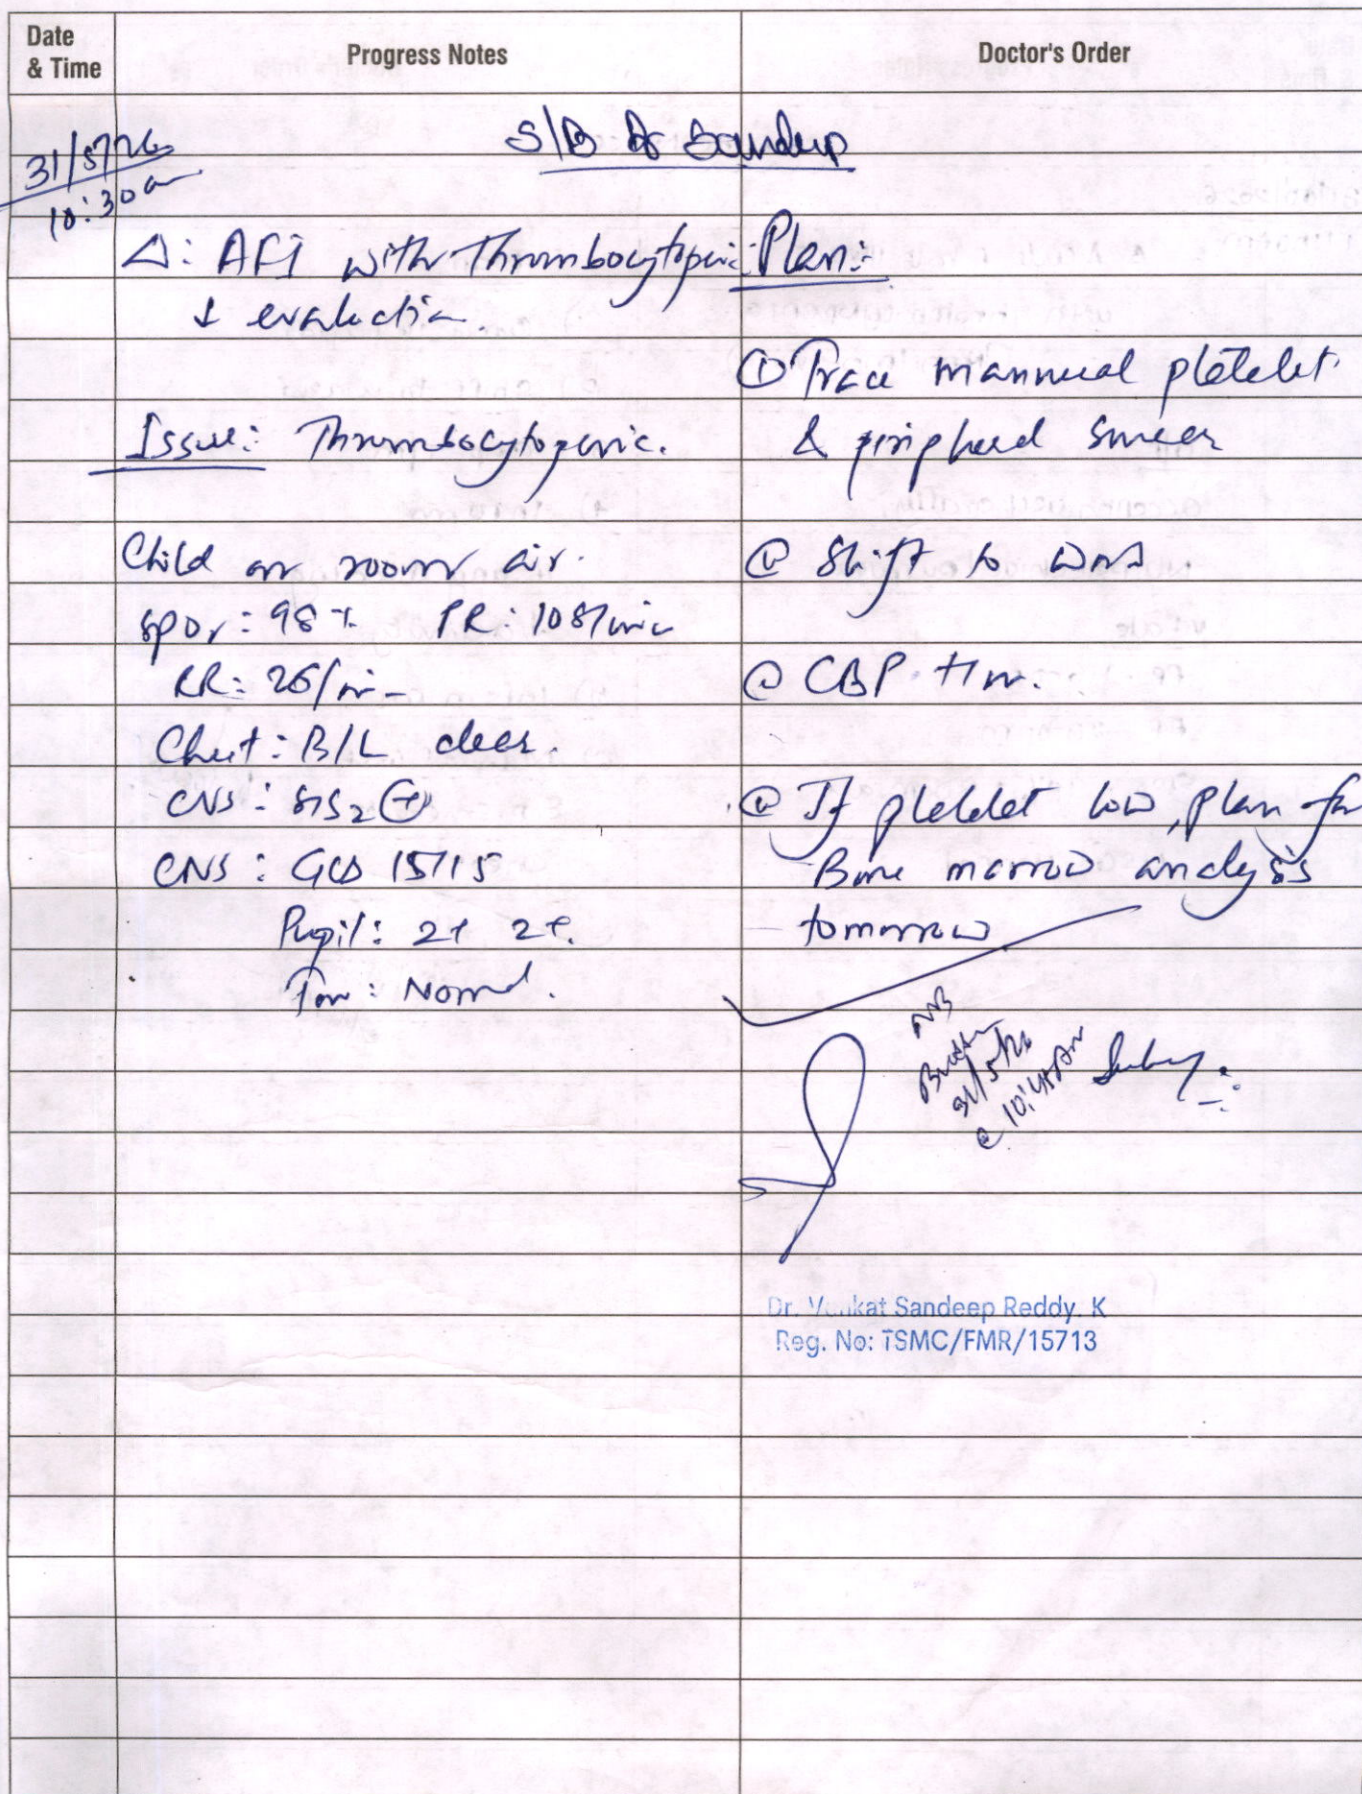 Date
& Time
Progress Notes
Doctor's Order
31/5/26
10:30a
S/B Dr Sandeep
Δ: AFI with Thrombocytopenic
↓ evaluation.
Issue: Thrombocytopenic.
Child on room air.
SpO₂: 98% PR: 108/min
RR: 26/min
Chest: B/L clear.
CVS: S1S2 ⊕
CNS: GCS 15/15
Pupil: 2+ 2+.
Tone: Normal.
Plan:
① Trace mannual platelet
& peripheral smear
@ Shift to ward
@ CBP
@ If platelet low, plan for
Bone marrow analysis
tomorrow
NB
31/5/26
@ 10:45AM
Dr. Venkat Sandeep Reddy. K
Reg. No: TSMC/FMR/15713